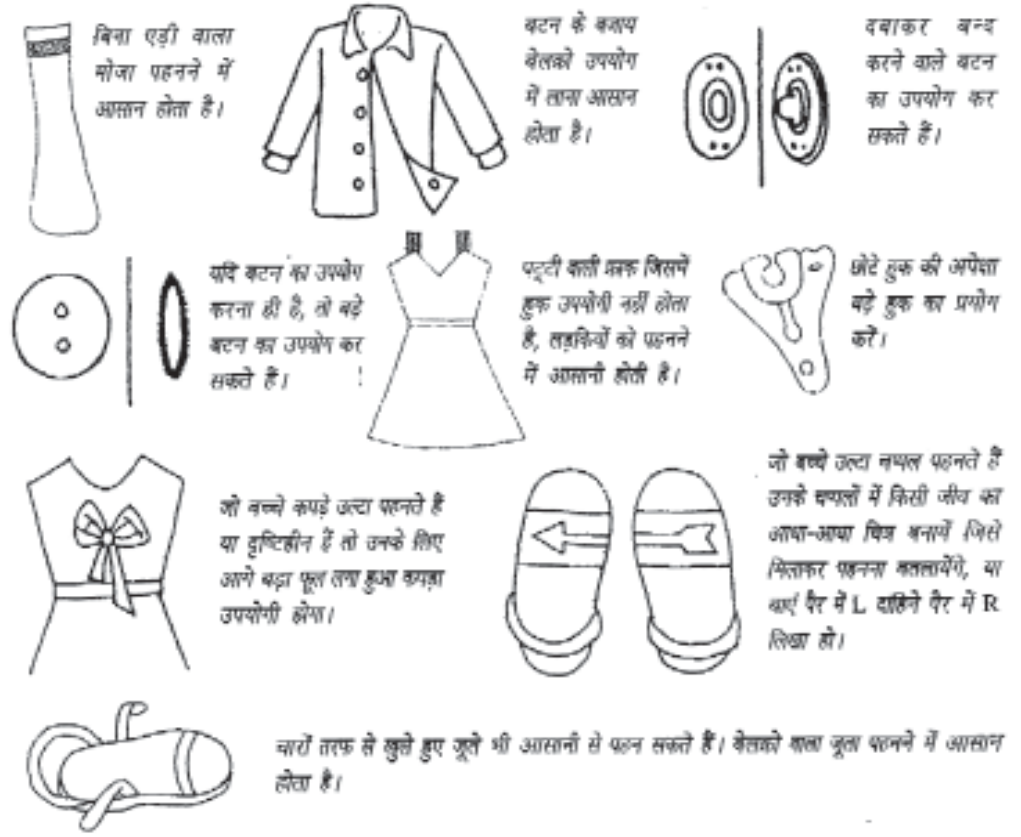 बिना एड़ी वाला
मोजा पहनने में
आसान होता है।
बटन के बजाय
वेलक्रो उपयोग
में लाना आसान
होता है।
दबाकर बन्द
करने वाले बटन
का उपयोग कर
सकते हैं।
यदि बटन का उपयोग
करना ही है, तो बड़े
बटन का उपयोग कर
सकते हैं।
पट्टी वाली फ्राक जिसमें
हुक उपयोगी नहीं होता
है, लड़कियों को पहनने
में आसानी होती है।
छोटे हुक की अपेक्षा
बड़े हुक का प्रयोग
करें।
जो बच्चे कपड़े उल्टा पहनते हैं
या दृष्टिहीन हैं तो उनके लिए
आगे बड़ा फूल लगा हुआ कपड़ा
उपयोगी होगा।
जो बच्चे उल्टा चप्पल पहनते हैं
उनके चप्पलों में किसी जीव का
आधा-आधा चित्र बनायें जिसे
मिलाकर पहनना बतलायेंगे, या
बाएं पैर में L दाहिने पैर में R
लिखा हो।
चारों तरफ से खुले हुए जूते भी आसानी से पहन सकते हैं। वेलक्रो वाला जूता पहनने में आसान
होता है।